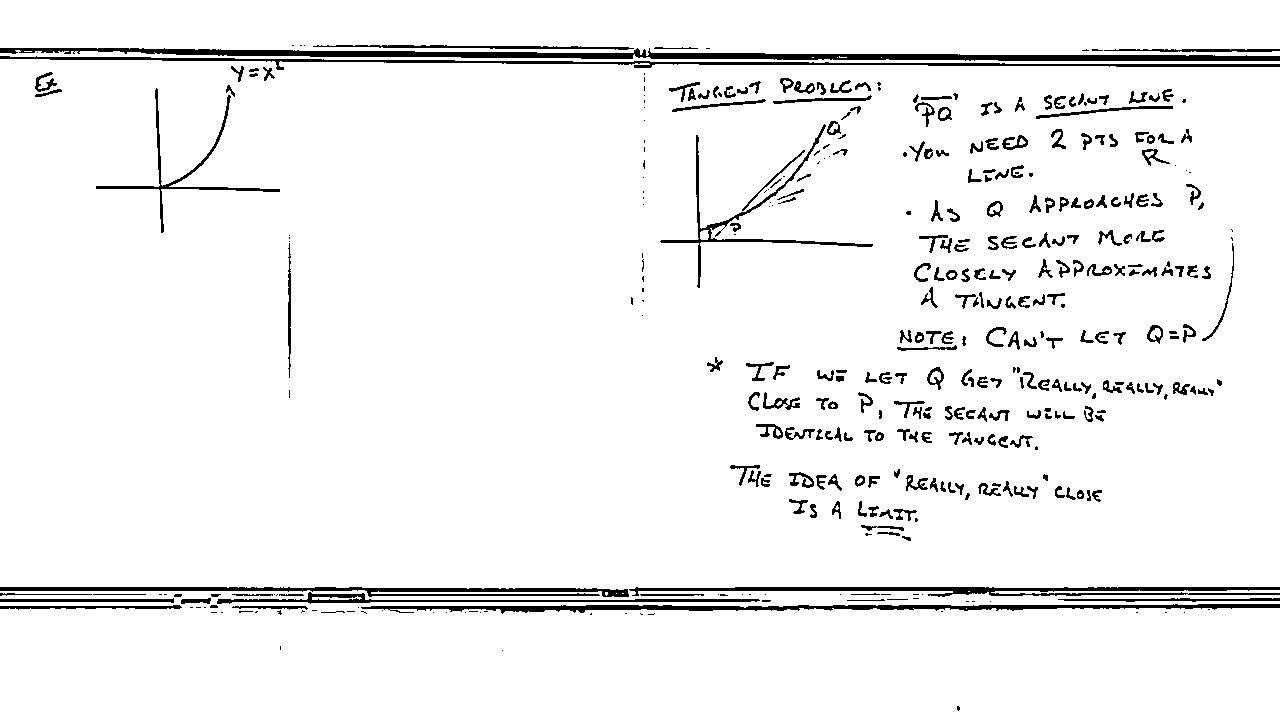 Ex
Y=X²
TANGENT PROBLEM:
Q
P
"PQ" IS A SECANT LINE.
• YOU NEED 2 PTS FOR A
LINE.
• AS Q APPROACHES P,
THE SECANT MORE
CLOSELY APPROXIMATES
A TANGENT.
NOTE: CAN'T LET Q=P
* IF WE LET Q GET "REALLY, REALLY, REALLY"
CLOSE TO P, THE SECANT WILL BE
IDENTICAL TO THE TANGENT.
THE IDEA OF "REALLY, REALLY" CLOSE
IS A LIMIT.